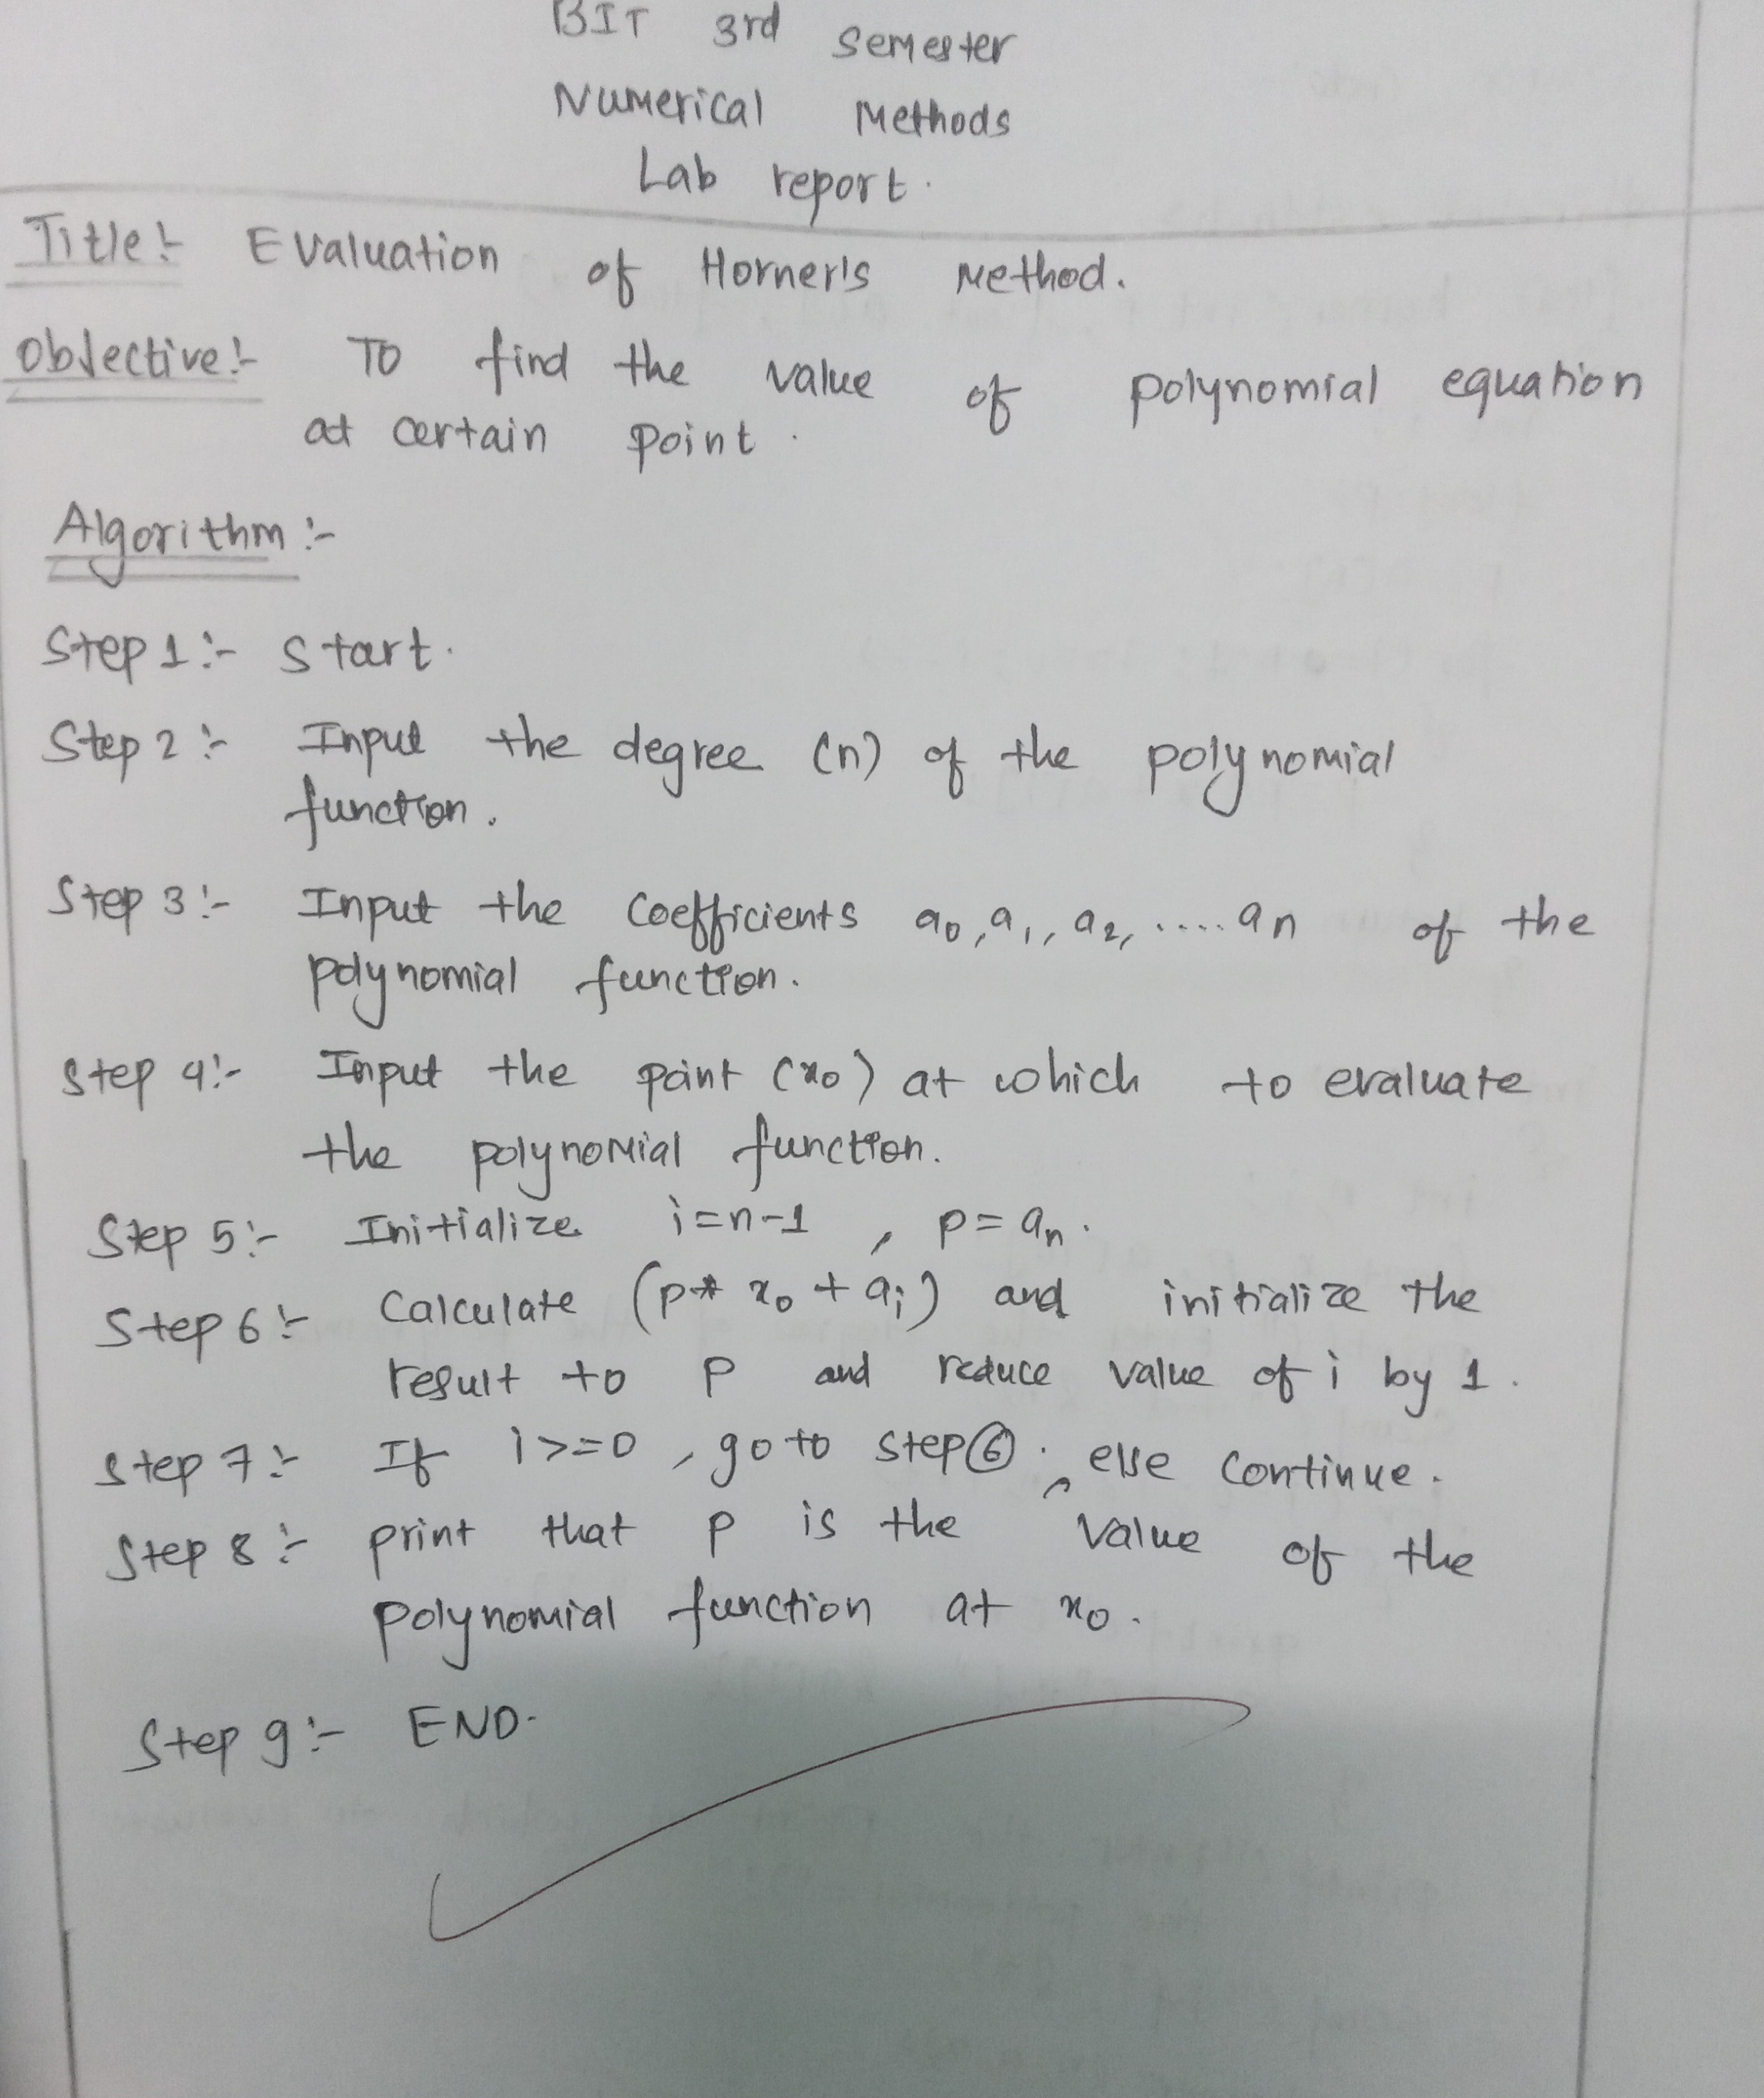 BIT 3rd Semester
Numerical Methods
Lab report.
Title:- Evaluation of Horner's Method.
Objective:- To find the value of polynomial equation
at certain point.
Algorithm:-
Step 1:- Start.
Step 2:- Input the degree (n) of the polynomial
function.
Step 3:- Input the coefficients a₀, a₁, a₂, .....an of the
polynomial function.
Step 4:- Input the point (x₀) at which to evaluate
the polynomial function.
Step 5:- Initialize i=n-1, p= an.
Step 6:- Calculate (p* x₀ + ai) and initialize the
result to P and reduce value of i by 1.
Step 7:- If i>=0, go to step 6. , else continue.
Step 8:- print that P is the value of the
polynomial function at x₀.
Step 9:- END.